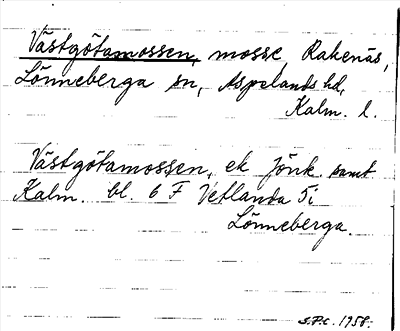 Västgötamossen, mosse, Rakenäs,
Lönneberga sn, Aspelands hd,
Kalm. l.
Västgötamossen, ek Jönk. samt
Kalm. bl. 6 F Vetlanda 5i
Lönneberga.
S.P.C. 1958.